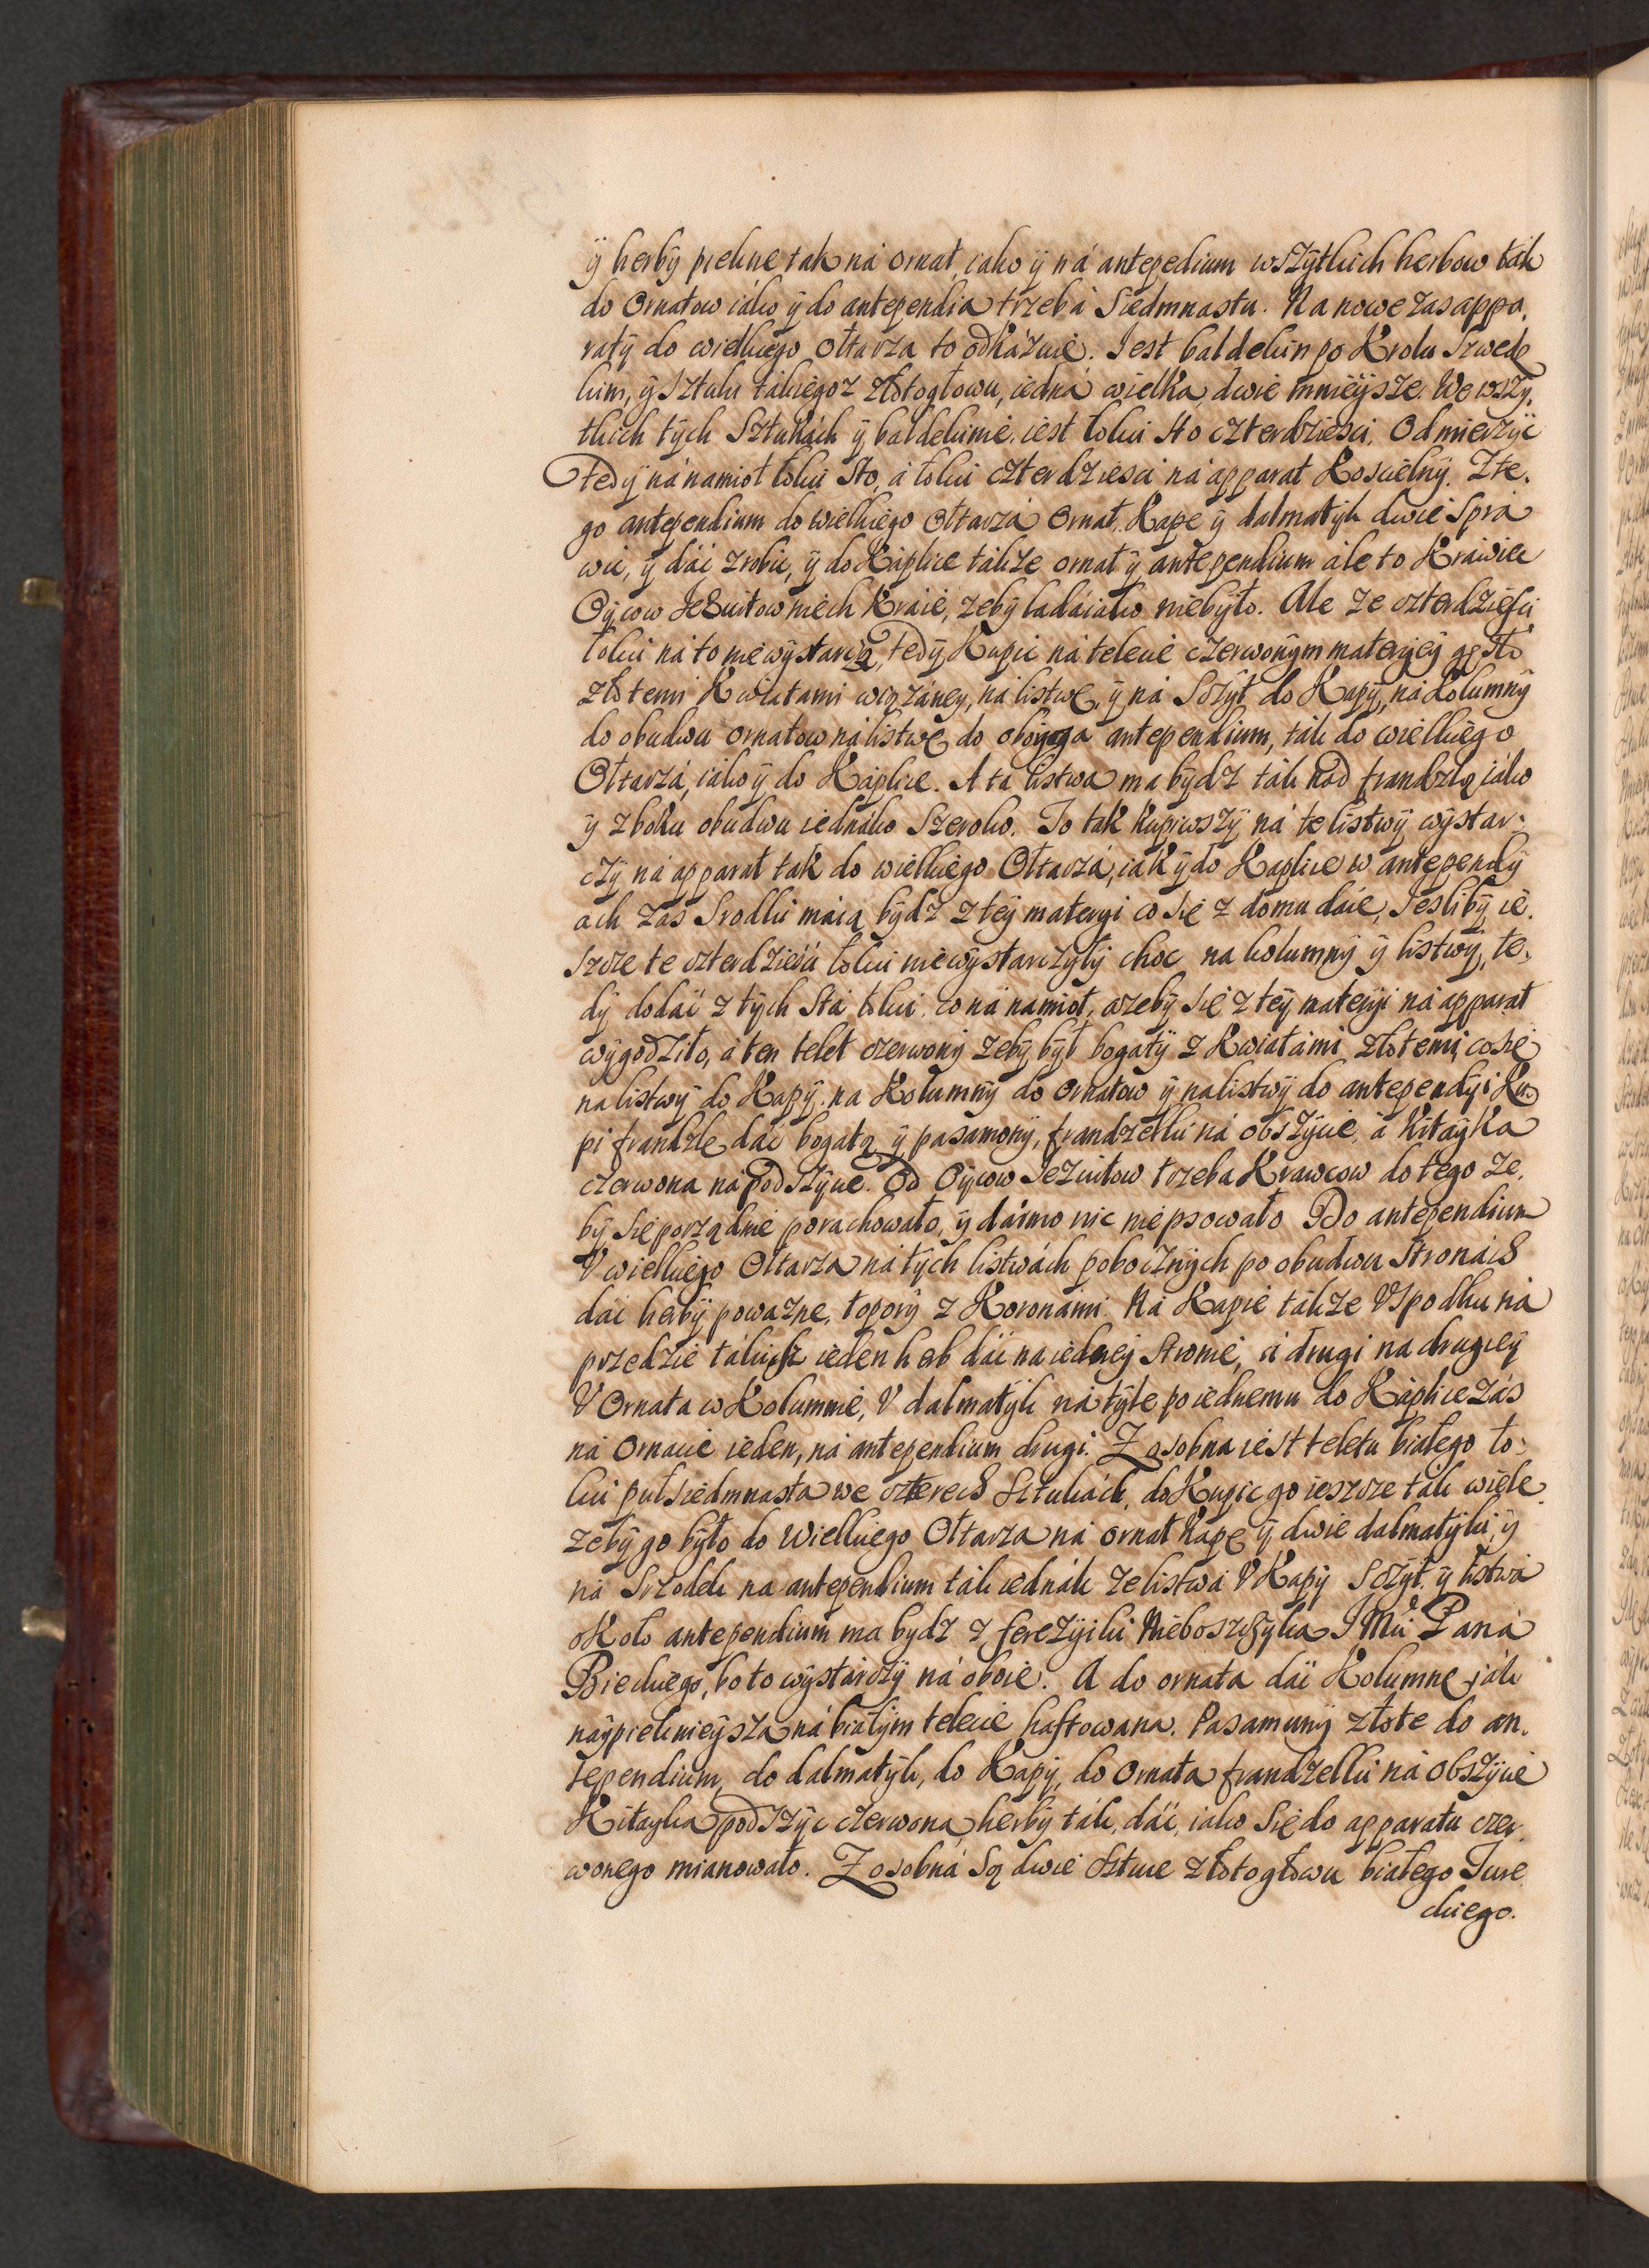 ÿ herbÿ piekne tak ná ornat, iako ÿ ná antepedium wszÿtkich herbow tak
do Ornatow iáko ÿ do antependia trzebá Siedmnastu. Na nowe zas appa.
ratÿ do wielkiego ołtarza to odkázuie. Iest baldekin po Krolu Szwedz
kim, ÿ Sztuki tákiegoz złotogłowu, iedná wielka, dwie mnieÿsze. We wszÿ.
tkich tÿch Sztukách ÿ baldekinie. iest łokci sto czterdziesci. Odmierzÿc
tedÿ ná namiot łokci sto, á łokci czterdziesci ná apparat Koscielnÿ. Zte.
go antependium do wielkiego ołtarzá Ornat, Kape ÿ dalmatÿk dwie Sprá
wic, ÿ dác zrobic, ÿ do Káplice tákze ornat ÿ antependium ále to Kráwiec
Oÿcow Jezuitow niech Kráie, zebÿ ladáiako niebÿło. Ale ze czterdziesci
łokci ná to niewÿstarczą, tedÿ Kupic ná telecie czerwonÿm materÿeÿ gęsto
złotemi Kwiatami wiązáneÿ, ná listwę, ÿ ná Sczÿt do Kapÿ, ná Kolumnÿ
do obudwu ornatow ná listwę do oboÿga antependium, ták do wielkiego
Ołtarzá, iáko ÿ do Káplice. A tá listwa ma bÿdz ták nad frandzlą iáko
ÿ zboku obudwu iednáko Szeroko. To tak kupiwszÿ ná te listwÿ wÿstar.
czÿ ná apparat tak do wielkiego Ołtarzá, iak ÿ do Kaplice w antependÿ
ach zas Srodki máią bÿdz z teÿ materÿi co się z domu dáie, Iesliby ie.
szcze te czterdziesci łokci niewÿstarczÿłÿ choc na kolumnÿ ÿ listwÿ, te.
dÿ dodác z tÿch Stá łokci co ná namiot, azebÿ się z teÿ materÿi ná apparat
wÿgodziło, á ten telet czerwonÿ zebÿ bÿł bogatÿ z Kwiatámi złotemi, co się
na listwÿ do Kapÿ. na Kolumnÿ do Ornatow ÿ na listwÿ do antependÿi Ku.
pi frandzle dác bogatą ÿ pasamonÿ, frandzelki ná obszÿcie, á kitaÿka
czerwona ná podszÿcie. Od Oÿcow Jezuitow trzeba Krawcow do tego ze.
bÿ się porządnie porachowało, ÿ dármo nic nie psowało Do antependium
V wielkiego Ołtarza ná tÿch listwách pobocznÿch po obudwu Stronách
dác herbÿ powazne, toporÿ z Koronámi. Ná Kapie tákze Vspodku ná
przedzie tákich ieden herb dác na iedneÿ stronie, á drugi na drugieÿ
V Ornata w Kolumnie, V dalmatÿk ná tÿle po iednemu do Káplice zás
ná Ornacie ieden, ná antependium drugi. Z osobna iest teletu białego ło.
kci puł siedmnasta we czterech Sztukách, do Kupic go ieszcze ták wiele
zebÿ go bÿło do Wielkiego Ołtarza ná ornat kapę ÿ dwie dalmatÿki, ÿ
ná Srzodek na antependium ták iednák ze listwá V Kapÿ Sczÿt. ÿ listwa
około antependium ma bydz z ferezÿiki Nieboszczÿka IMci Paná
Bieckiego, bo to wÿstárczÿ ná oboie. A do ornata dác Kolumnę iák
naÿpieknieÿsza ná białÿm telecie haftowana. Pasamunÿ złote do an.
tependium, do dalmatÿk, do Kapÿ, do Ornata frandzelki ná obszÿcie
Kitayka podszÿc czerwona herbÿ ták, dác, iako się do apparatu czer.
wonego mianowało. Z osobná Są dwie sztuce złotogłowu białego Ture
ckiego.